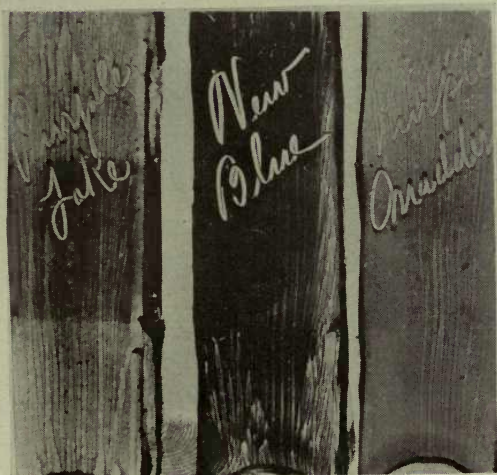 Purple
Lake
New
Blue
Purple
Madder